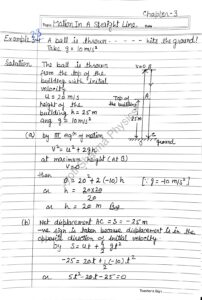 Chapter-3
Topic Motion In A Straight Line Date
Example 3.3 A ball is thrown - - - - - - hits the ground?
Take g = 10 m/s²
Solution The ball is thrown
from the top of the
building with initial
velocity
u = 20 m/s
height of the
building h = 25m
and g = 10 m/s²
Top of
the building
(a) by III eqⁿ of motion
V² = u² + 2gh
at maximum height (at B)
V = 0
then
0 = 20² + 2(-10) h [∵ g = -10 m/s²]
or h = 20×20
20
or h = 20 m Ans
(b) Net displacement AC = S = -25m
-ve sign is taken because displacement is in the
opposite direction of initial velocity
by S = ut + 1/2 gt²
-25 = 20t + 1/2 (-10) t²
or 5t² - 20t - 25 = 0
Teacher's Sign